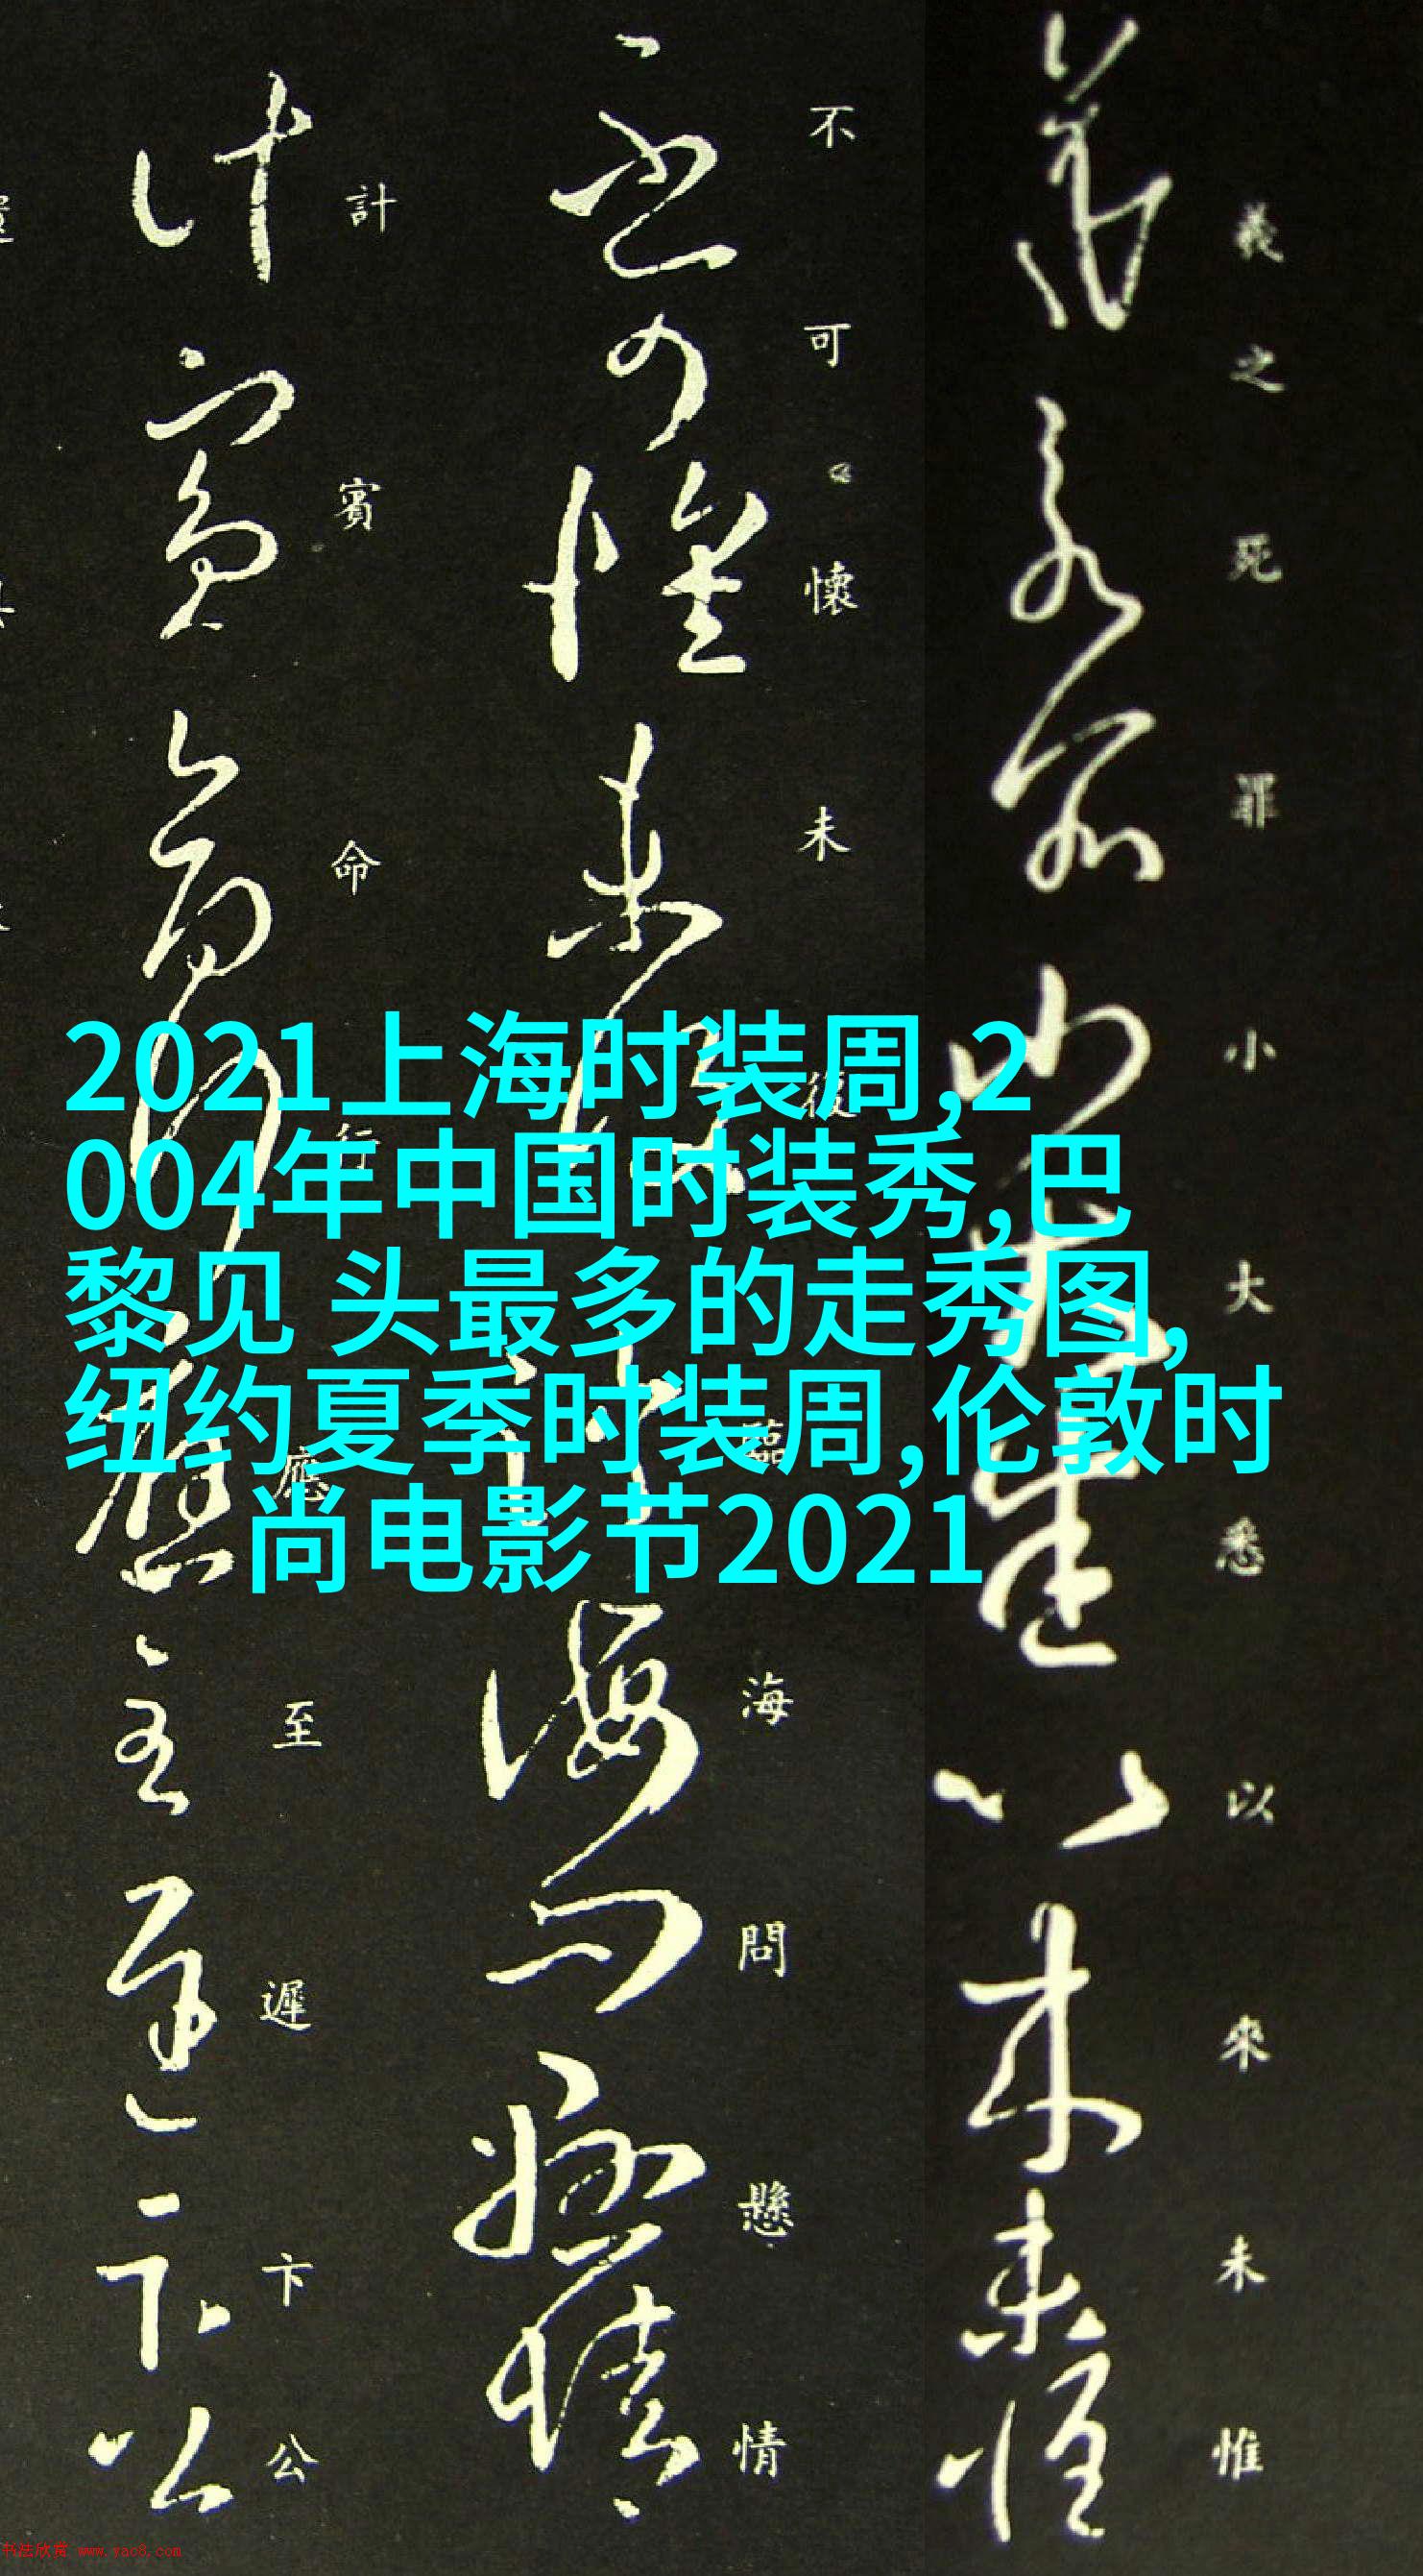 義之死罪小大悉以來未惟
不可懷未後臨海問懸情
計賓命行應至遲卞公
2021上海时装周,2
004年中国时装秀,巴
黎见 头最多的走秀图,
纽约夏季时装周,伦敦时
尚电影节2021
书法欣赏 www.yac8.com